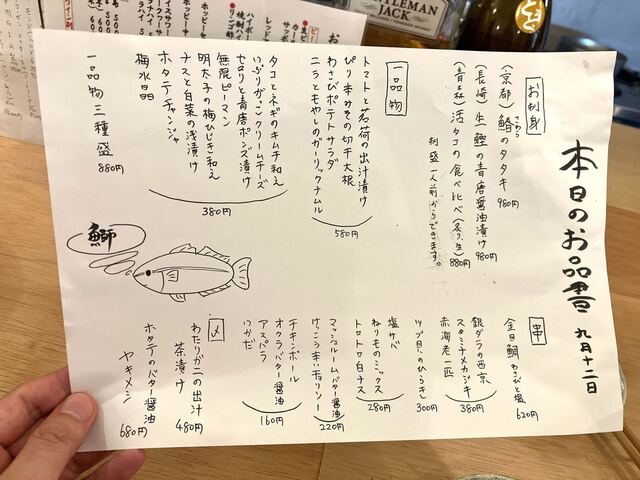 本日のお品書 九月十二日
お刺身
(京都) 鰆のタタキ 980円
さわら
(長崎) 生鰹の青唐醤油漬け 980円
(青森) 活タコの食べ比べ(炙、生) 880円
刺盛一人前からできます。
一品物
トマトと茗荷の出汁漬け
ぴり辛みその切干大根
わさびポテトサラダ
ニラともやしのガーリックナムル
580円
タコとネギのキムチ和え
いぶりがっこクリームチーズ
セロリと青唐ポンズ漬け
無限ピーマン
明太子の梅ひじき和え
ナスと白菜の浅漬け
ホタテチャンジャ
梅水晶
380円
一品物三種盛 880円
鰤
串
金目鯛 わさびと塩 620円
銀ダラの西京
スタミナメカジキ
赤海老一匹
380円
ツブ貝のひらきし 300円
塩サバ
ねりものミックス
トロトロ白ナス
280円
マッシュルームバター醤油
けっこう辛い青りソー
220円
チキンボール
オクラバター醤油
アスパラ
つかだ
160円
〆
わたりガニの出汁
茶漬け 480円
ホタテのバター醤油
ヤキメシ 680円
GENTLEMAN
JACK